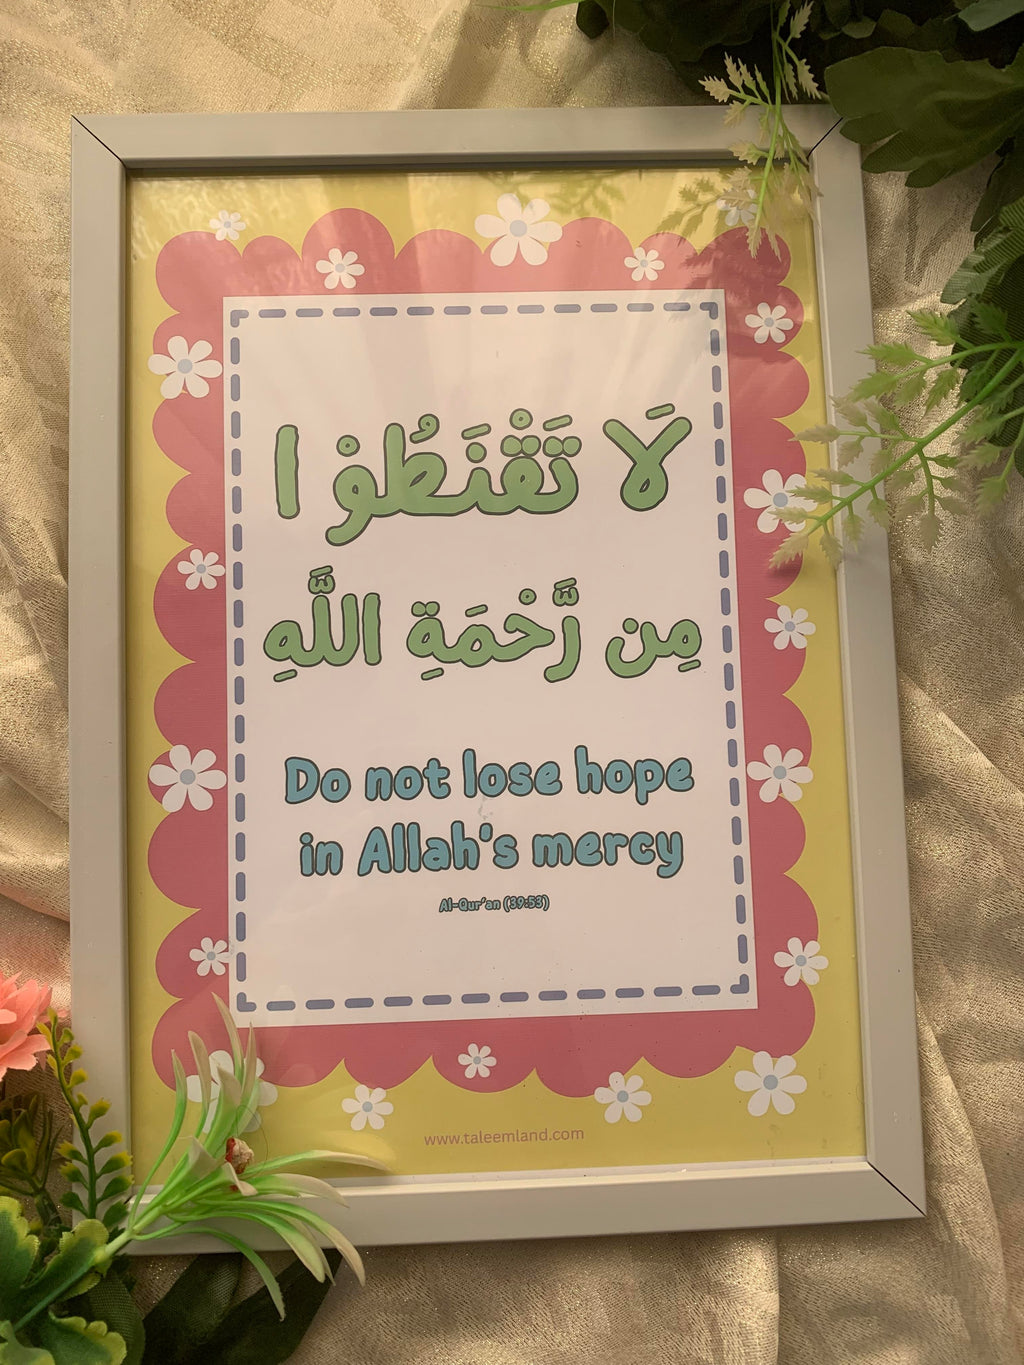 لَا تَقْنَطُوْ ا
مِن رَّحْمَةِ اللَّهِ
Do not lose hope
in Allah's mercy
Al-Qur'an (39:53)
www.taleemland.com